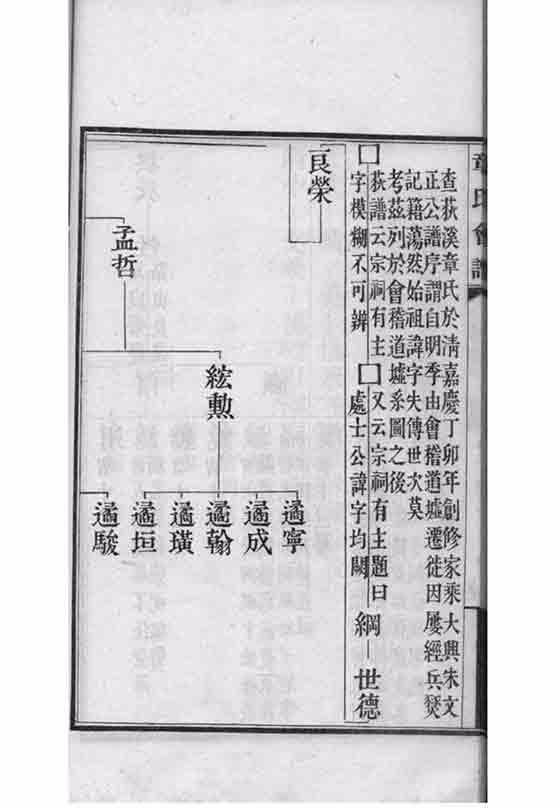 章氏會譜
查荻溪章氏於淸嘉慶丁卯年創修家乘大興朱文
正公譜序謂自明季由會稽道墟遷徙因屢經兵燹
記籍蕩然始祖諱字失傳世次莫
考茲列於會稽道墟系圖之後
荻譜云宗祠有主
字模糊不可辨
又云宗祠有主題曰
處士公諱字均闕
綱
世德
良榮
孟哲
綋勲
遹寧
遹成
遹翰
遹璜
遹垣
遹駿